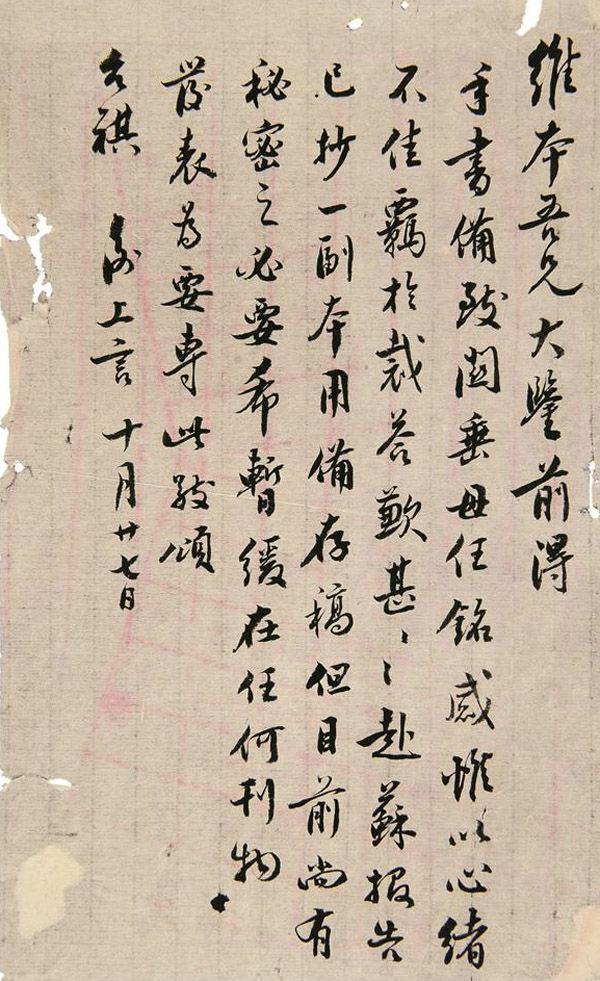 維本吾兄大鑒前得
手書備致關垂毋任銘感惟以心緒
不佳羈於裁答歉甚〻赴蘇報告
已抄一副本用備存稿但目前尚有
秘密之必要希暫緩在任何刊物
發表為要專此敬頌
台祺 上言 十月廿七日